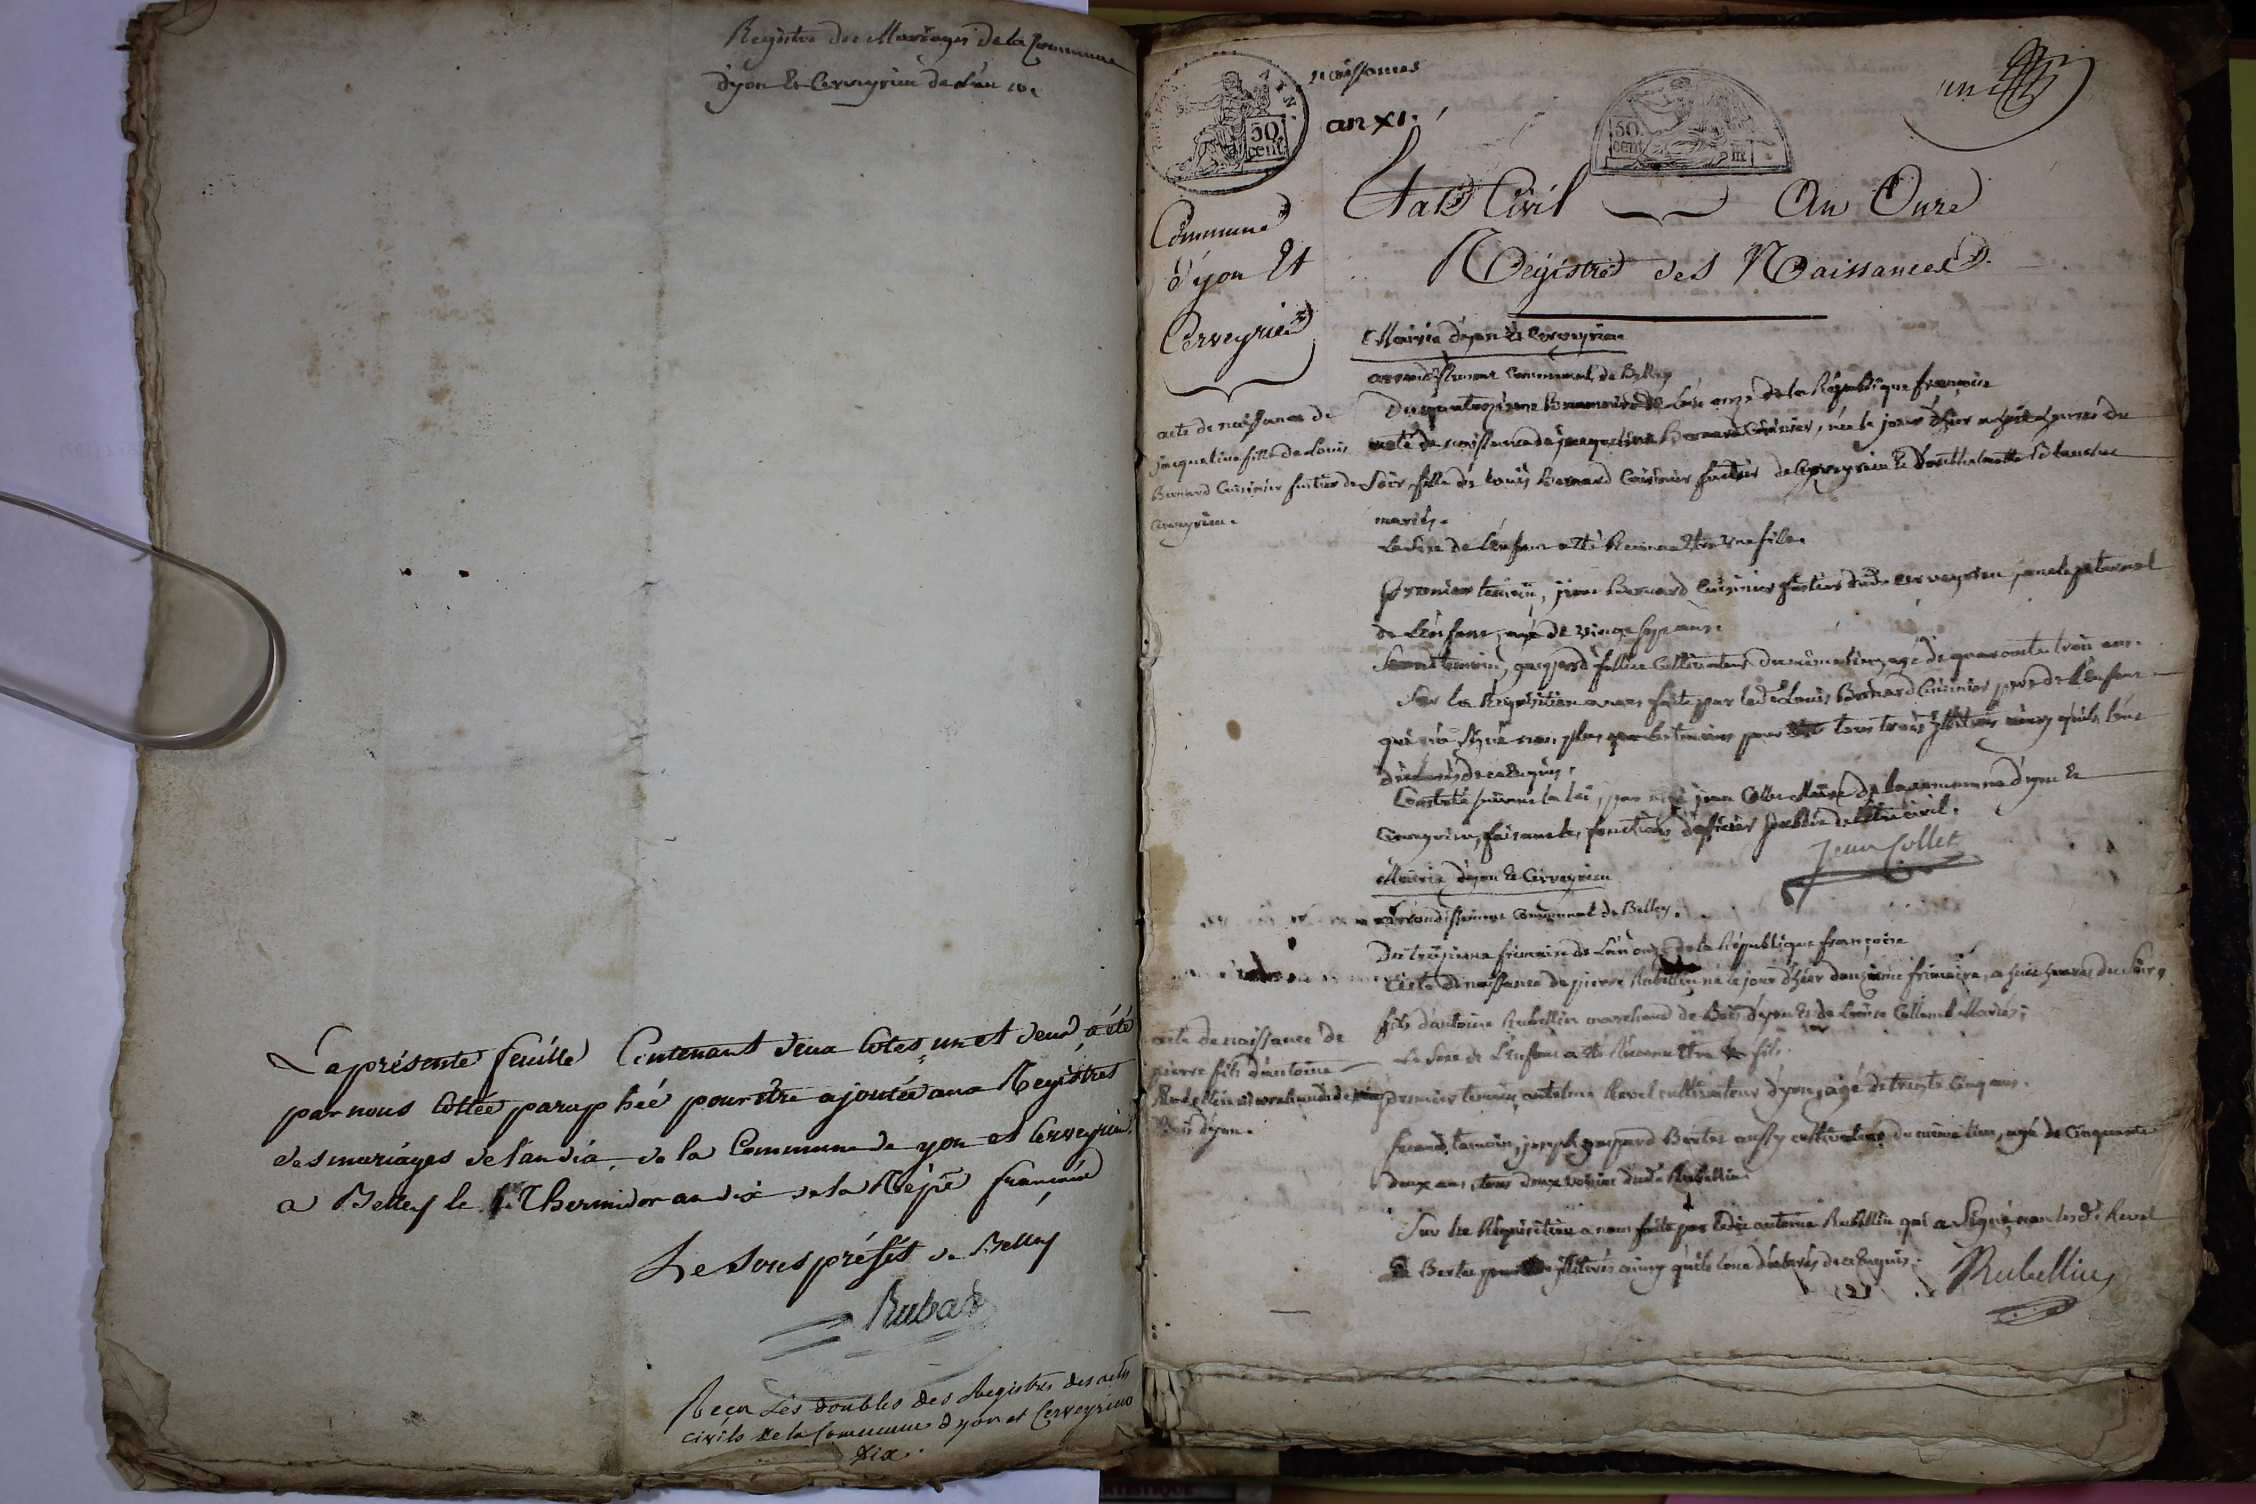 Registre des Mariages de la Commune
d'yon et Cerveyrieu de l'an 10e
La présente feuille Contenant deux Cotes un et deux, a été
par nous Cottée paraphée pour être ajoutée aux Registres
des mariages de l'an dix, de la Commune de yon et Cerveyrieu.
a Belley le Thermidor an dix de la Répe française
Le Sous préfet de Belley
Rubat
Reçu Les doubles des Registres des actes
civils de la Commune d'yon et Cerveyrieu
dix.
AIN.
50
cent
naissances
an XI.
50
cent
un
Commune
d'yon Et
Cerveyrieu
Etat Civil An Onze
Régistre des Naissances.
Mairie d'yon et Cerveyrieu
arrondissement Communal de Belley
Du quatorzieme Brumaire de l'an onze de la République françoise
acte de naissance de
jacqueline fille de Louis
Bernard Cuisinier fustier de
Cerveyrieu.
acte de naissance de jacqueline Bernard Cuisinier, née le jour d'hier a huit heures du
Soir, fille de Louis Bernard Cuisinier fustier de Cerveyrieu et
mariés.
Le Sexe de L'enfant a été Reconnu Etre Une fille.
premier temoin, Bernard Cuisinier fustier dudt Cerveyrieu, oncle paternel
de L'enfant, agé de vingt Sept ans.
Second temoin, gaspard Cultivateur du même Lieu, agé de quarante trois ans.
Sur la Réquisition a nous faite par ledt Louis Bernard Cuisinier pere de L'enfant
qui n'a Signé non plus que les temoins pour tous trois illitérés ainsy qu'ils L'ont
déclarés de ce Enquis.
Constaté suivant la Loi, par moi jean Collet Maire de la commune d'yon et
Cerveyrieu, faisant les fonctions d'officier public de l'état civil.
Jean Collet
Mairie d'yon et Cerveyrieu
arrondissement Communal de Belley.
Du treizieme frimaire de L'an onze de la République françoise
acte de naissance de
pierre fils d'antoine
Rubellin marchand de
Bois d'yon.
acte de naissance de pierre Rubellin né le jour d'hier douzieme frimaire, a huit heures du Soir,
fils d'antoine Rubellin marchand de Bois d'yon et de Louise Collomb Mariés;
Le Sexe de L'enfant a été Reconnu Etre un fils.
premier temoin, antelme Revel cultivateur d'yon, agé de trente Cinq ans.
Second temoin, joseph gaspard Bertet aussy cultivateur du même Lieu, agé de Cinquante
deux ans, tous deux voisins dudt Rubellin.
Sur la Réquisition a nous faite par ledit antoine Rubellin qui a Signé, non Lesdts Revel
et Bertet pour illitérés ainsy qu'ils L'ont déclarés de ce Enquis.
Rubellin